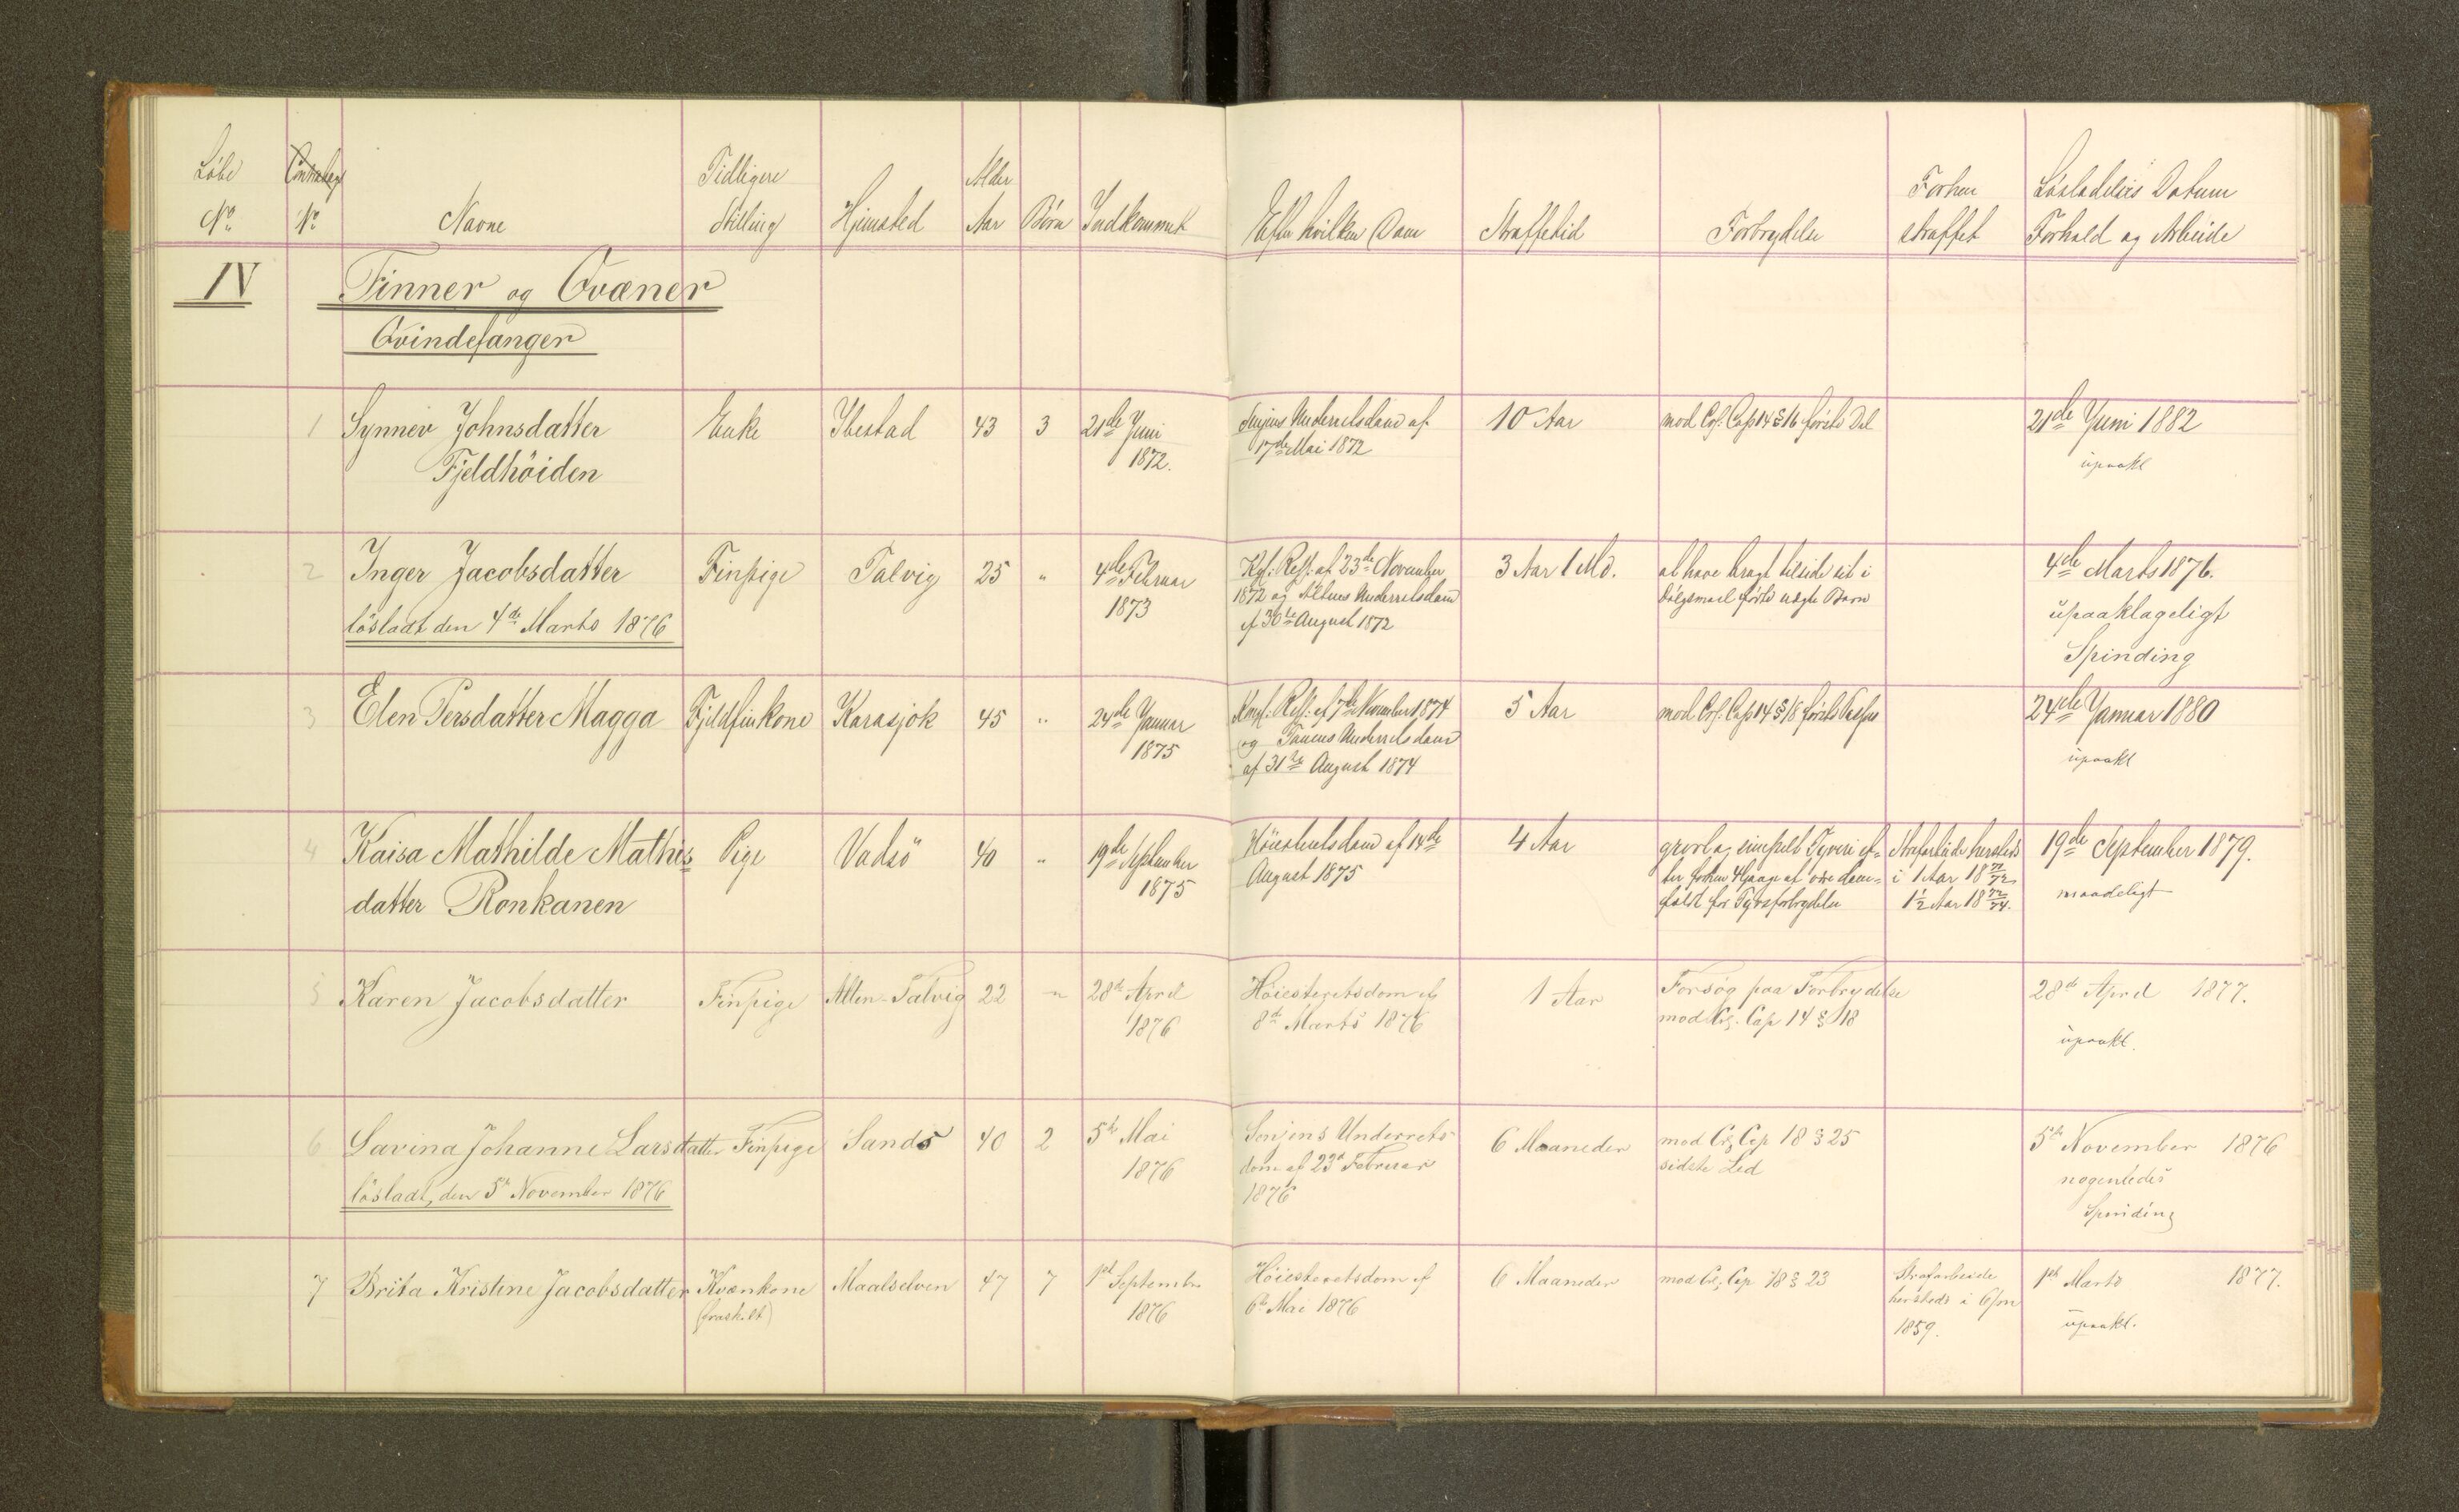 Løbe
No.
No.
Navne
Tidligere
Stilling
Hjemsted
Alder
Aar
Børn
Indkommet
Efter hvilken Dom
Straffetid
Forbrydelse
Forhen
straffet
Løsladelses Datum
Forhold og Arbeide
IV
Finner og Qvæner
Qvindefanger
1
Synnev Johnsdatter
Fjeldhöiden
Enke
Ibestad
43
3
21de Juni
1872.
Senjens Underretsdom af
17de Mai 1872
10 Aar
mod Crl. Cap 14 § 16 første Del
21de Juni 1882
upaakl
2
Inger Jacobsdatter
løsladt den 4de Marts 1876
Finpige
Talvig
25
"
4de Februar
1873
Kgl. Res. af 23de November
1872 og Altens Underretsdom
af 30te August 1872
3 Aar 1 Md.
at have bragt tilside sit i
Dølgsmaal fødte uægte Barn
4de Marts 1876.
upaaklageligt
Spinding
3
Elen Persdatter Magga
Fjeldfinkone
Karasjok
45
"
24de Januar
1875
Kongl. Res. af 7de November 1874
og Tanens Underretsdom
af 31te August 1874
5 Aar
mod Crl. Cap 14 § 18 første Passus
24de Januar 1880
upaakl
4
Kaisa Mathilde Mathis
datter Ronkanen
Pige
Vadsö
40
"
19de September
1875
Høiesteretsdom af 14de
August 1875
4 Aar
grovt og simpelt Tyveri ef-
ter forhen 4 Gange at være dom-
fældt for Tyvsforbrydelse
Strafarbeide hersteds
i 1 Aar 18 71/72
1½ Aar 18 72/74.
19de September 1879.
maadeligt
5
Karen Jacobsdatter
Finpige
Alten-Talvig
22
"
28de April
1876
Høiesteretsdom af
8de Marts 1876
1 Aar
Forsøg paa Forbrydelse
mod Crl. Cap 14 § 18
28de April 1877.
upaakl.
6
Savina Johanne Larsdatter
løsladt, den 5te November 1876
Finpige
Sandö
40
2
5te Mai
1876
Senjens Underrets
dom af 23de Februar
1876
6 Maaneder
mod Crl. Cap 18 § 25
sidste Led
5te November 1876
nogenledes
Spinding
7
Brita Kristine Jacobsdatter
Kvænkone
(fraskilt)
Maalselven
47
7
1st September
1876
Høiesteretsdom af
6te Mai 1876
6 Maaneder
mod Crl. Cap 18 § 23
Strafarbeide
hersteds i
1859.
1ste Marts 1877.
upaakl.